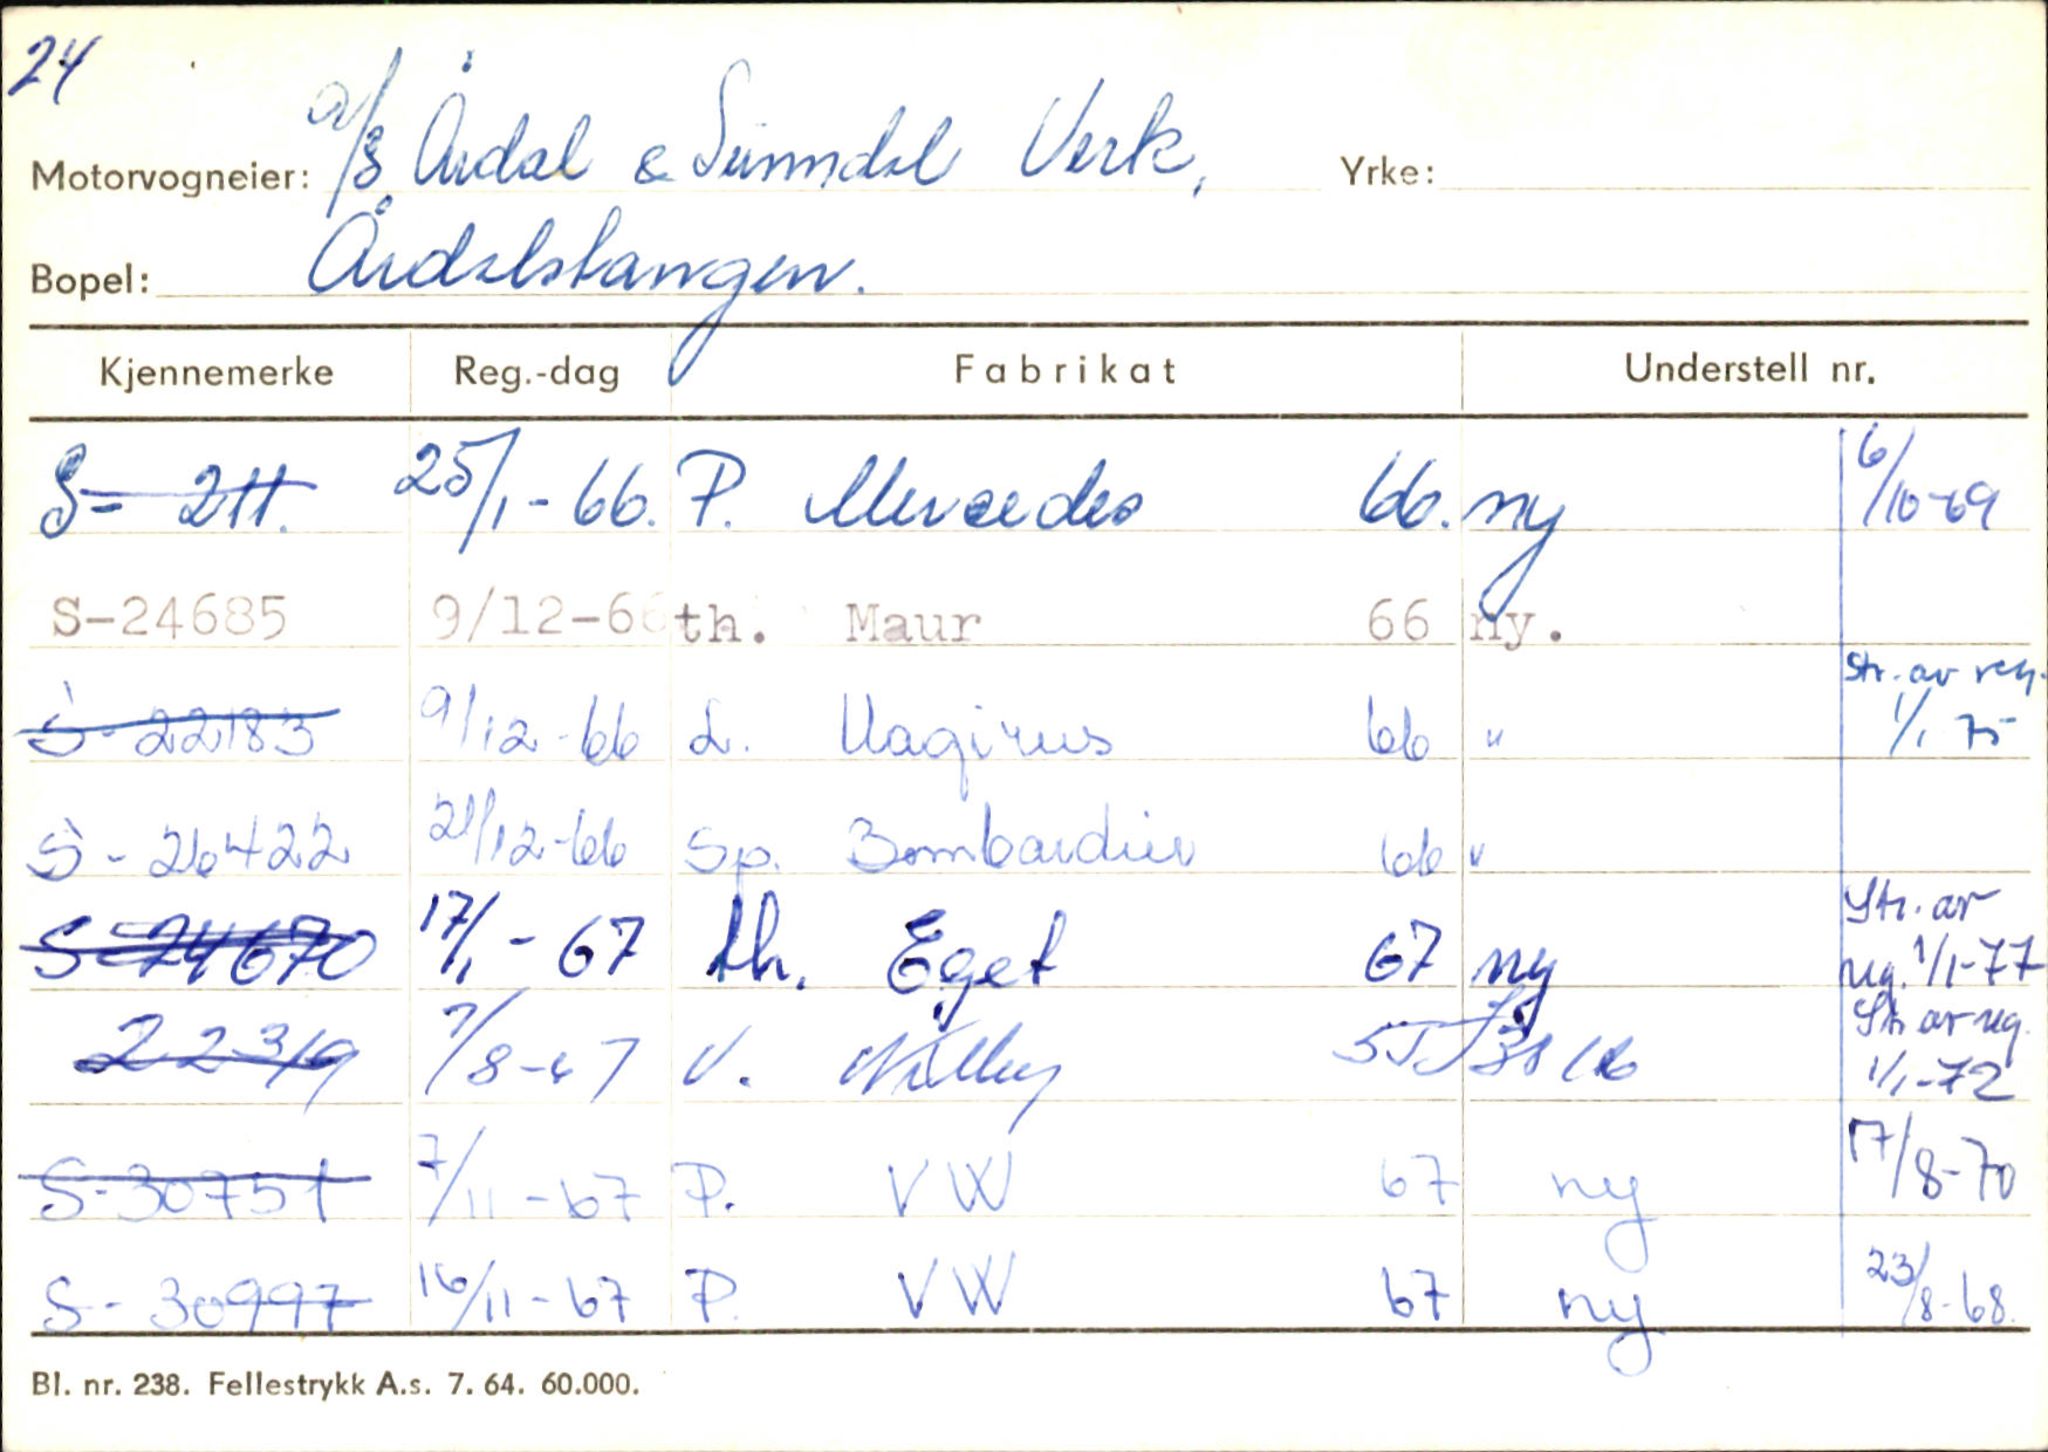 24
Motorvogneier: a/s Årdal & Sunndal Verk, Yrke:
Bopel: Årdalstangen.
Kjennemerke Reg.-dag Fabrikat Understell nr.
S- 211. 25/1-66. P. Mercedes 66. ny 6/10-69
S-24685 9/12-66 th. Maur 66 ny.
S-22183 9/12-66 L. Magirus 66 " Str. av reg. 1/1 75
S-26422 21/12-66 Sp. Bombardier 66 "
S-24670 17/1-67 th. Eget 67 ny Str. av reg. 1/1-77
22319 7/8-67 V. Willys 55 Str av reg. 1/1-72
S-30751 7/11-67 P. VW 67 ny 17/8-70
S-30997 16/11-67 P. VW 67 ny 23/8-68.
Bl. nr. 238. Fellestrykk A.s. 7. 64. 60.000.